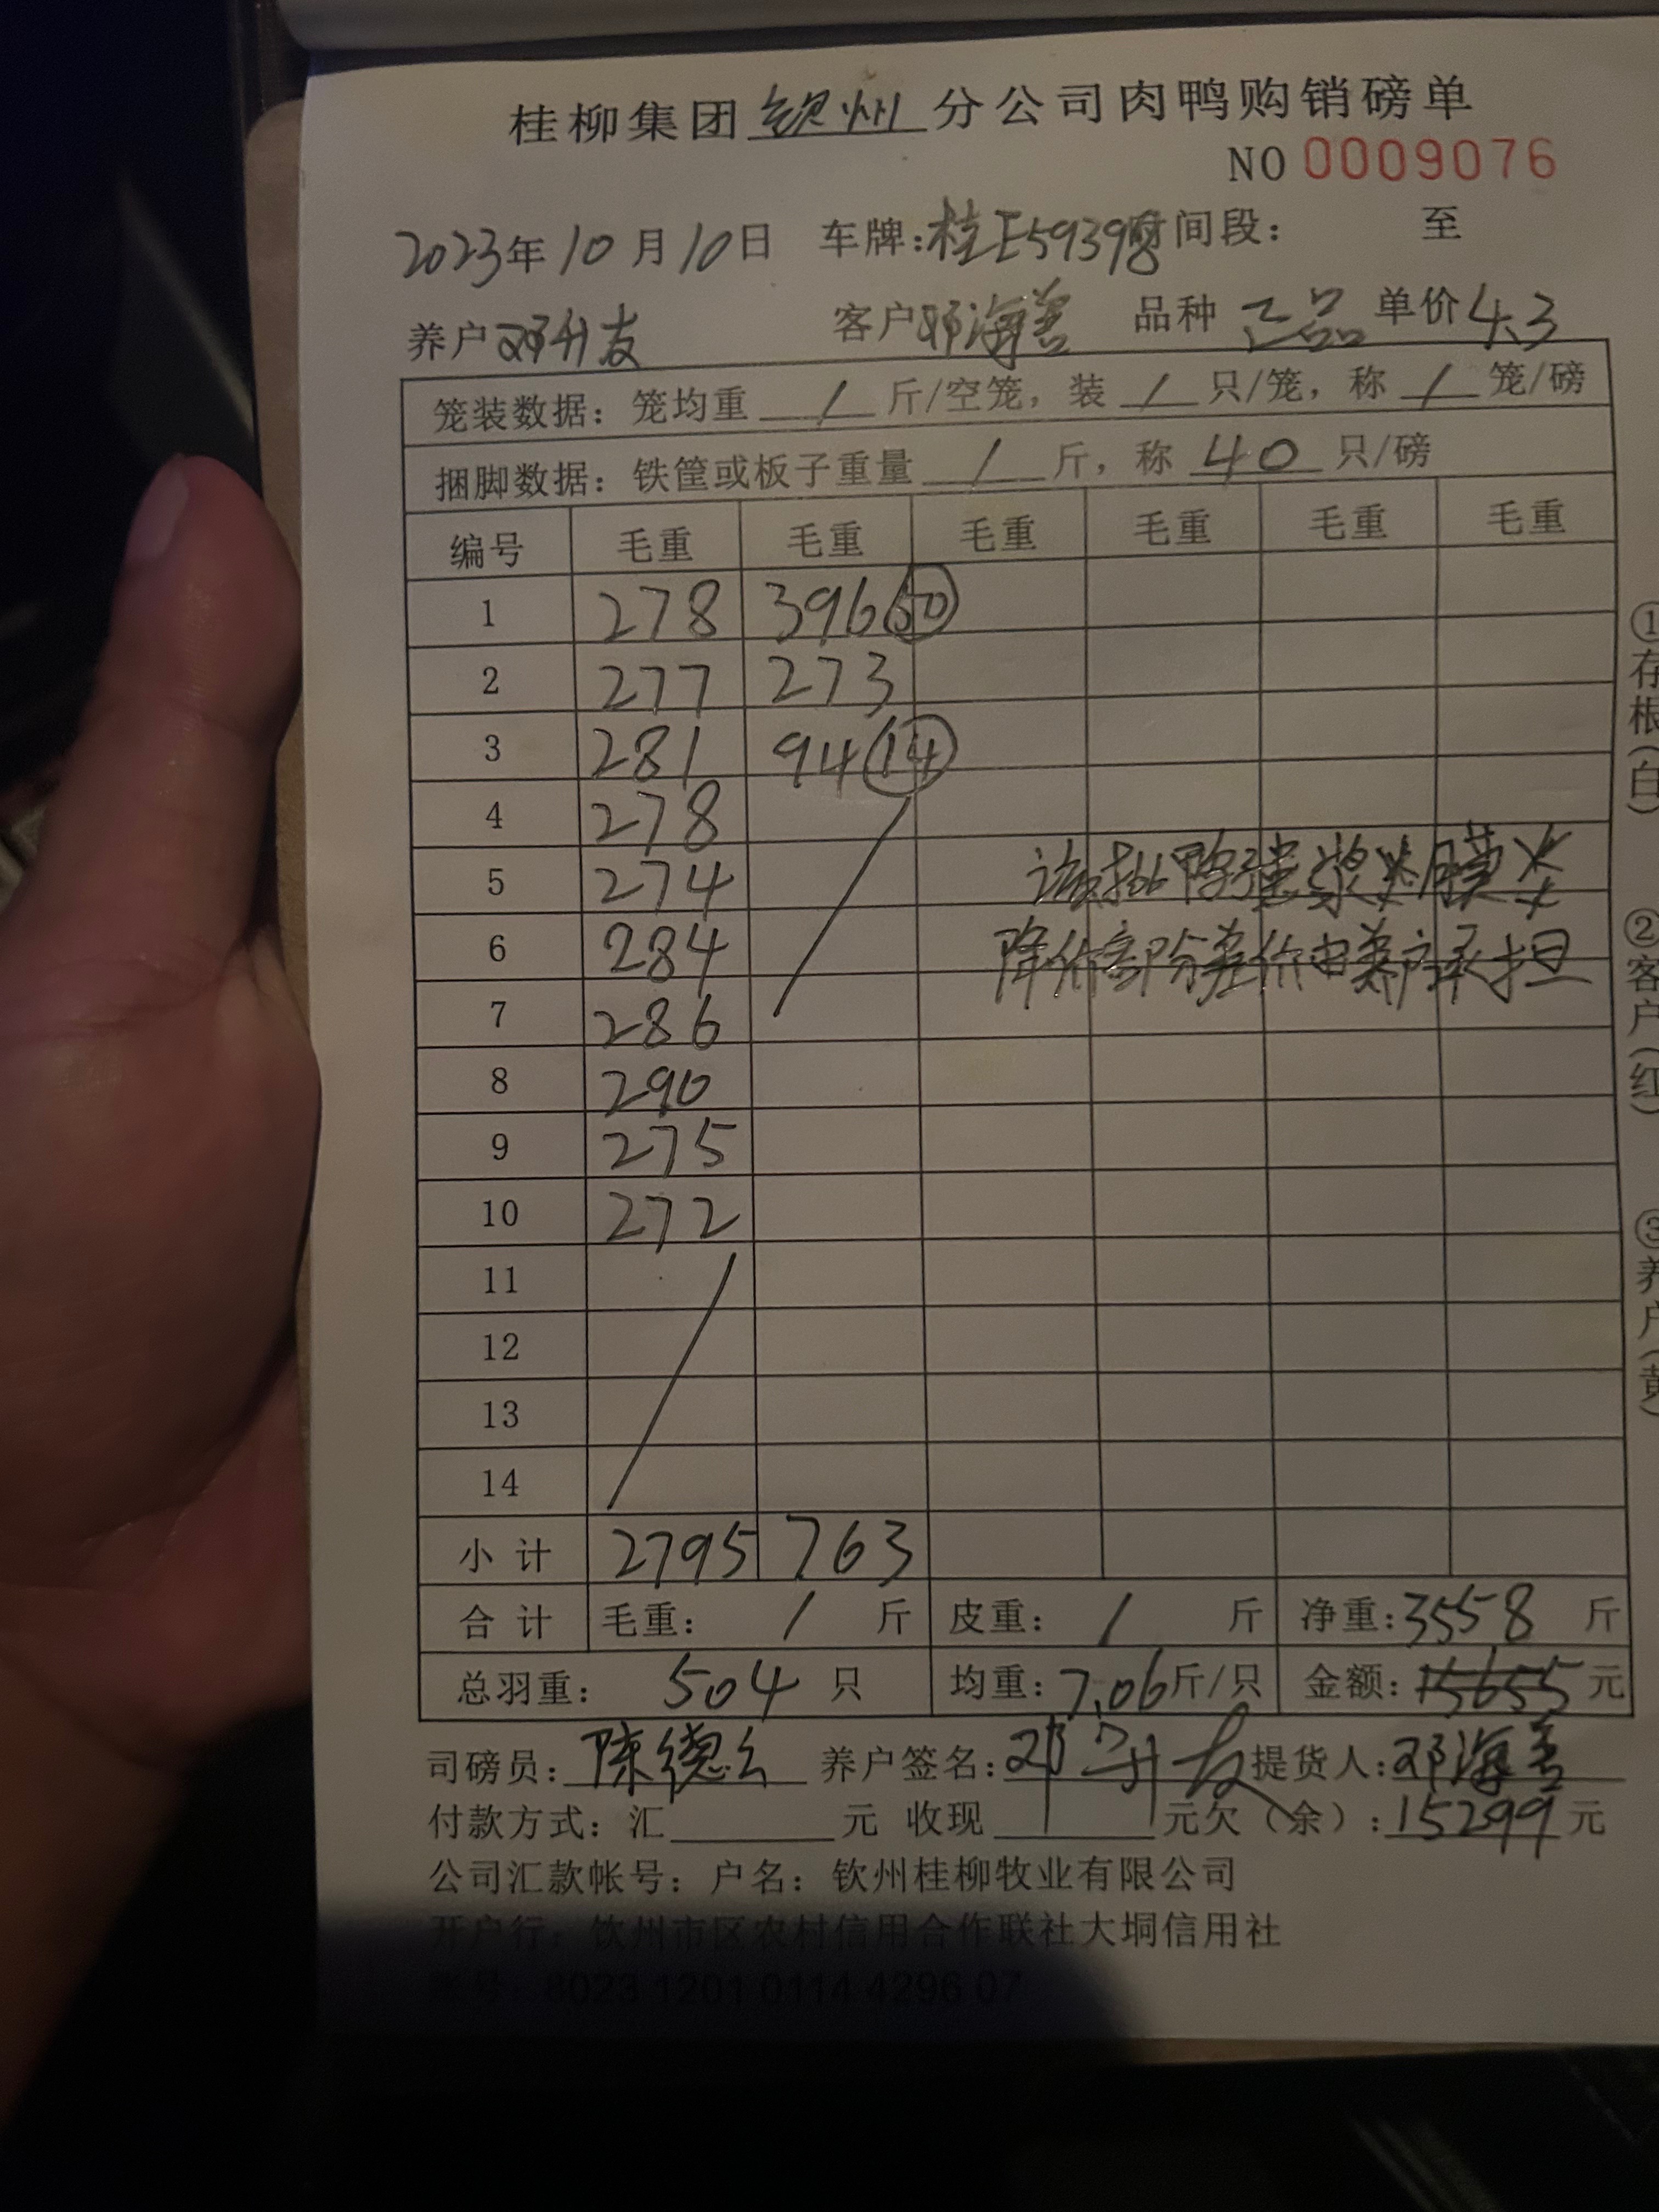 桂柳集团钦州分公司肉鸭购销磅单
NO 0009076
2023年10月10日 车牌:桂E59398 时间段: 至
养户 邓升友 客户 邓海善 品种 正品 单价 4.3
笼装数据: 笼均重 / 斤/空笼, 装 / 只/笼, 称 / 笼/磅
捆脚数据: 铁筐或板子重量 / 斤, 称 40 只/磅
编号 毛重 毛重 毛重 毛重 毛重 毛重
1 278 396 50
2 277 273
3 281 94 14
4 278
5 274
6 284
7 286
8 290
9 275
10 272
11
12
13
14
该批鸭强浆炎膜炎
降价部份差价由养户承担
小计 2795 763
合计 毛重: / 斤 皮重: / 斤 净重: 3558 斤
总羽重: 504 只 均重: 7.06 斤/只 金额: 15655 元
司磅员: 陈德 养户签名: 邓升友 提货人: 邓海善
付款方式: 汇 元 收现 元 欠(余): 15299 元
公司汇款帐号: 户名: 钦州桂柳牧业有限公司
开户行: 钦州市区农村信用合作联社大垌信用社
帐号: 8023 1201 0114 4296 07
①存根(白)
②客户(红)
③养户(黄)